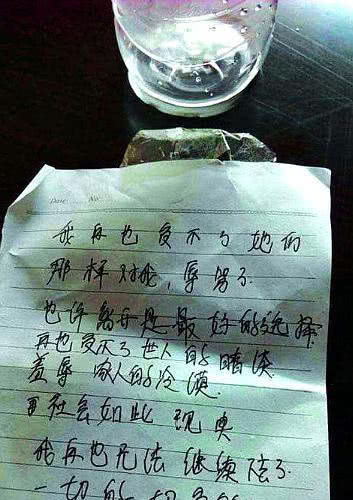 Date No
我再也受不了她们
那样对我，辱骂了
也许离开是最好的选择
再也受不了世人的
羞辱 家人的冷漠
社会如此现实
我再也无法继续
一切的